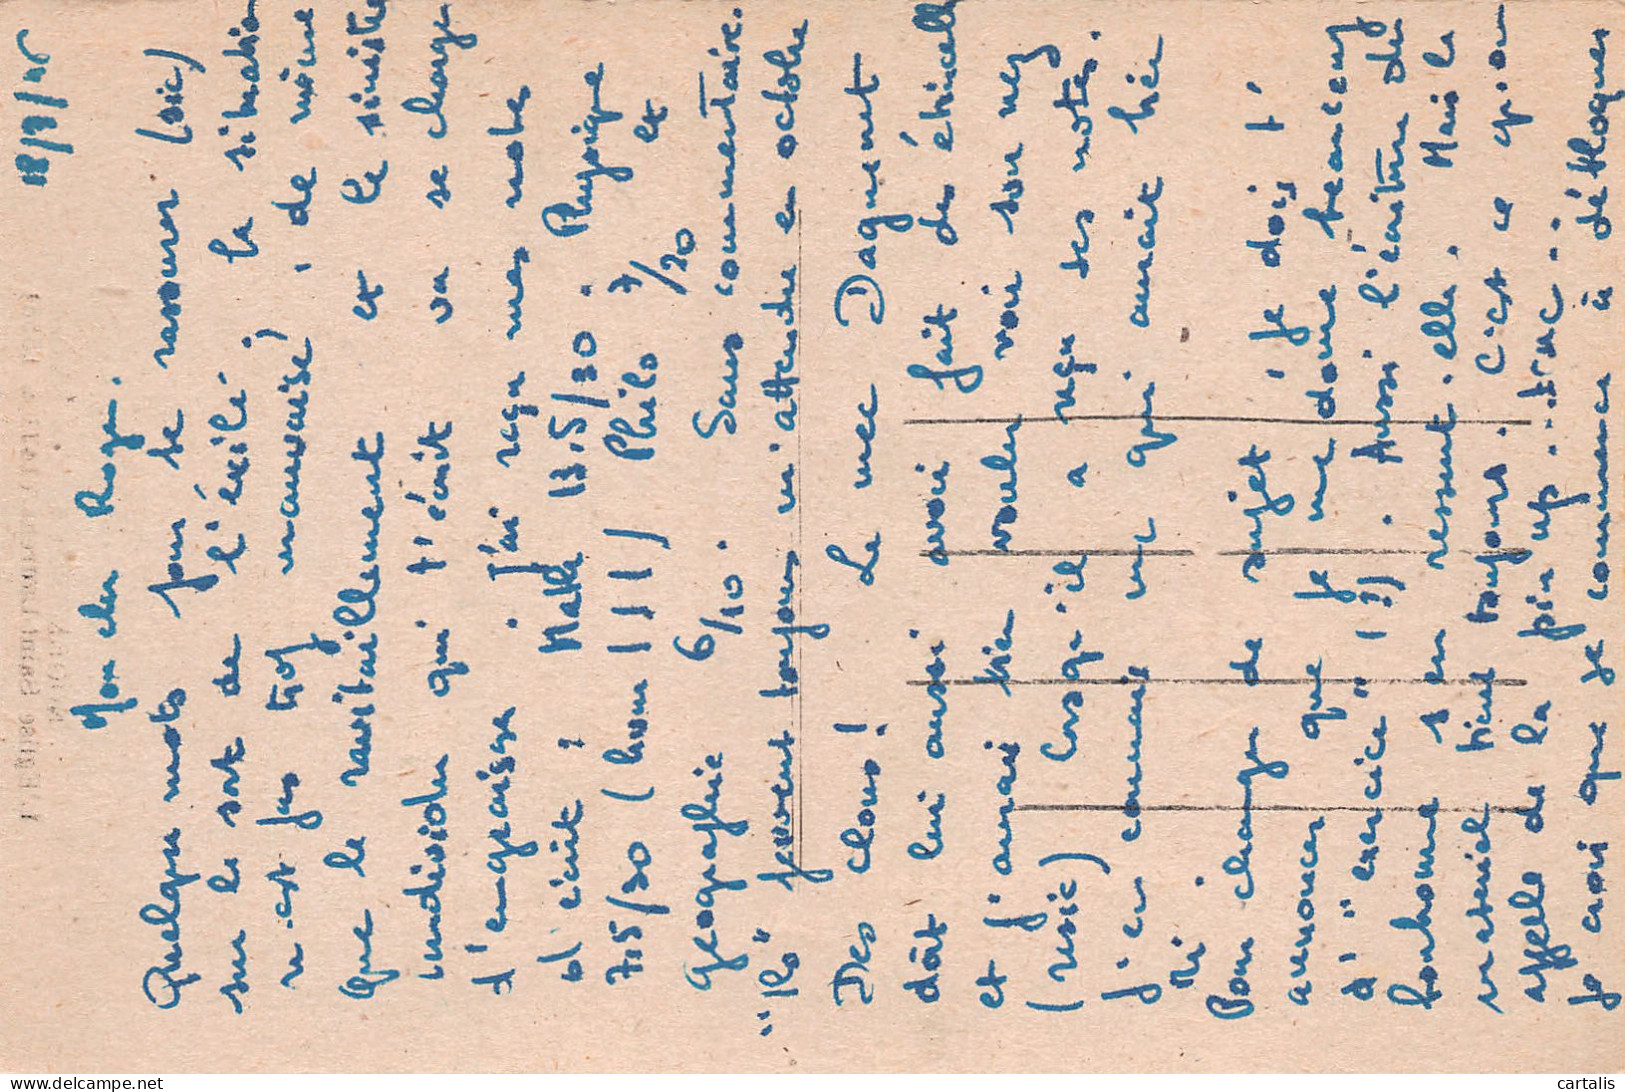 18/9/45
Mon cher Roger.
Quelques mots pour te rassurer (sic)
sur le sort de l'exilé ; la situation
n'est pas trop mauvaise, de même
que le ravitaillement et le sinistre
individu qui t'écrit va se charge
d'engraisse. J'ai reçu mes notes
d'écrit : Math 13.5/30. Physique
7.5/30 (hum ! ! !) Philo 7/20 et
géographie 6/10. Sans commentaire.
"Ils" peuvent toujours m'attendre en octobre
Des clous! Le mec Daguenet
doit lui aussi avoir fait des étincelles
et j'aurai bien voulu voir son nez
(resic) lorsqu'il a reçu ses notes.
j'en connais un qui aurait bien
ri.
Pour changer de sujet, je dois t'
annoncer que je me donne beaucoup
d'"exercice" (!!). Aussi l'écriture du
bonhomme s'en ressent-elle. Mais le
matériel tient toujours. C'est ce qu'on
appelle de la pin up...truc...
Je crois que je commence à débloquer
L'Eglise Saint
cartalis